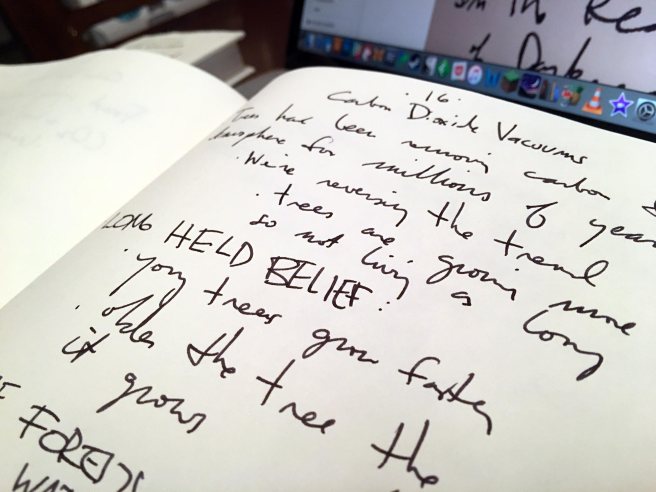 in the Rea
of Dark
· 16 ·
Carbon Dioxide Vacuums
Trees have been removing carbon
for millions of year
· We're reversing the trend
· trees are growing more
so not living as long
LONG HELD BELIEF:
· young trees grow faster
· older the tree the
it grows
FORESTS